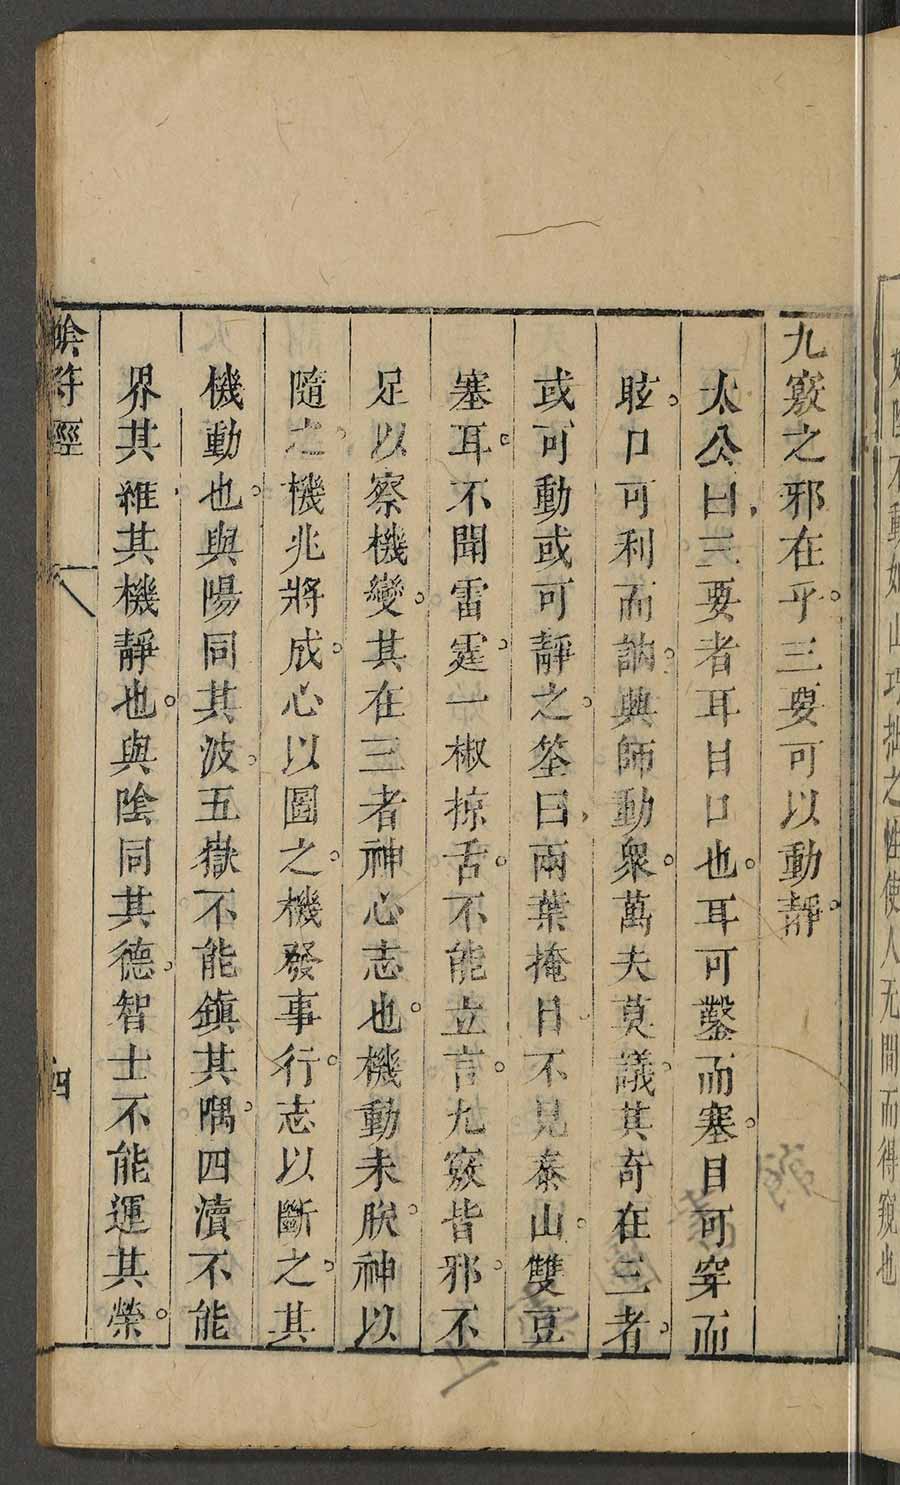 如陰不動如山巧拙之性使人无間而得窺也
九竅之邪在乎三要可以動靜
太公曰三要者耳目口也耳可鑿而塞目可穿而
眩口可利而訥興師動衆萬夫莫議其奇在三者
或可動或可靜之筌曰兩葉掩目不見泰山雙豆
塞耳不聞雷霆一椒掠舌不能立言九竅皆邪不
足以察機變其在三者神心志也機動未朕神以
隨之機兆將成心以圖之機發事行志以斷之其
機動也與陽同其波五嶽不能鎮其隅四瀆不能
界其維其機靜也與陰同其德智士不能運其榮
陰符經 四